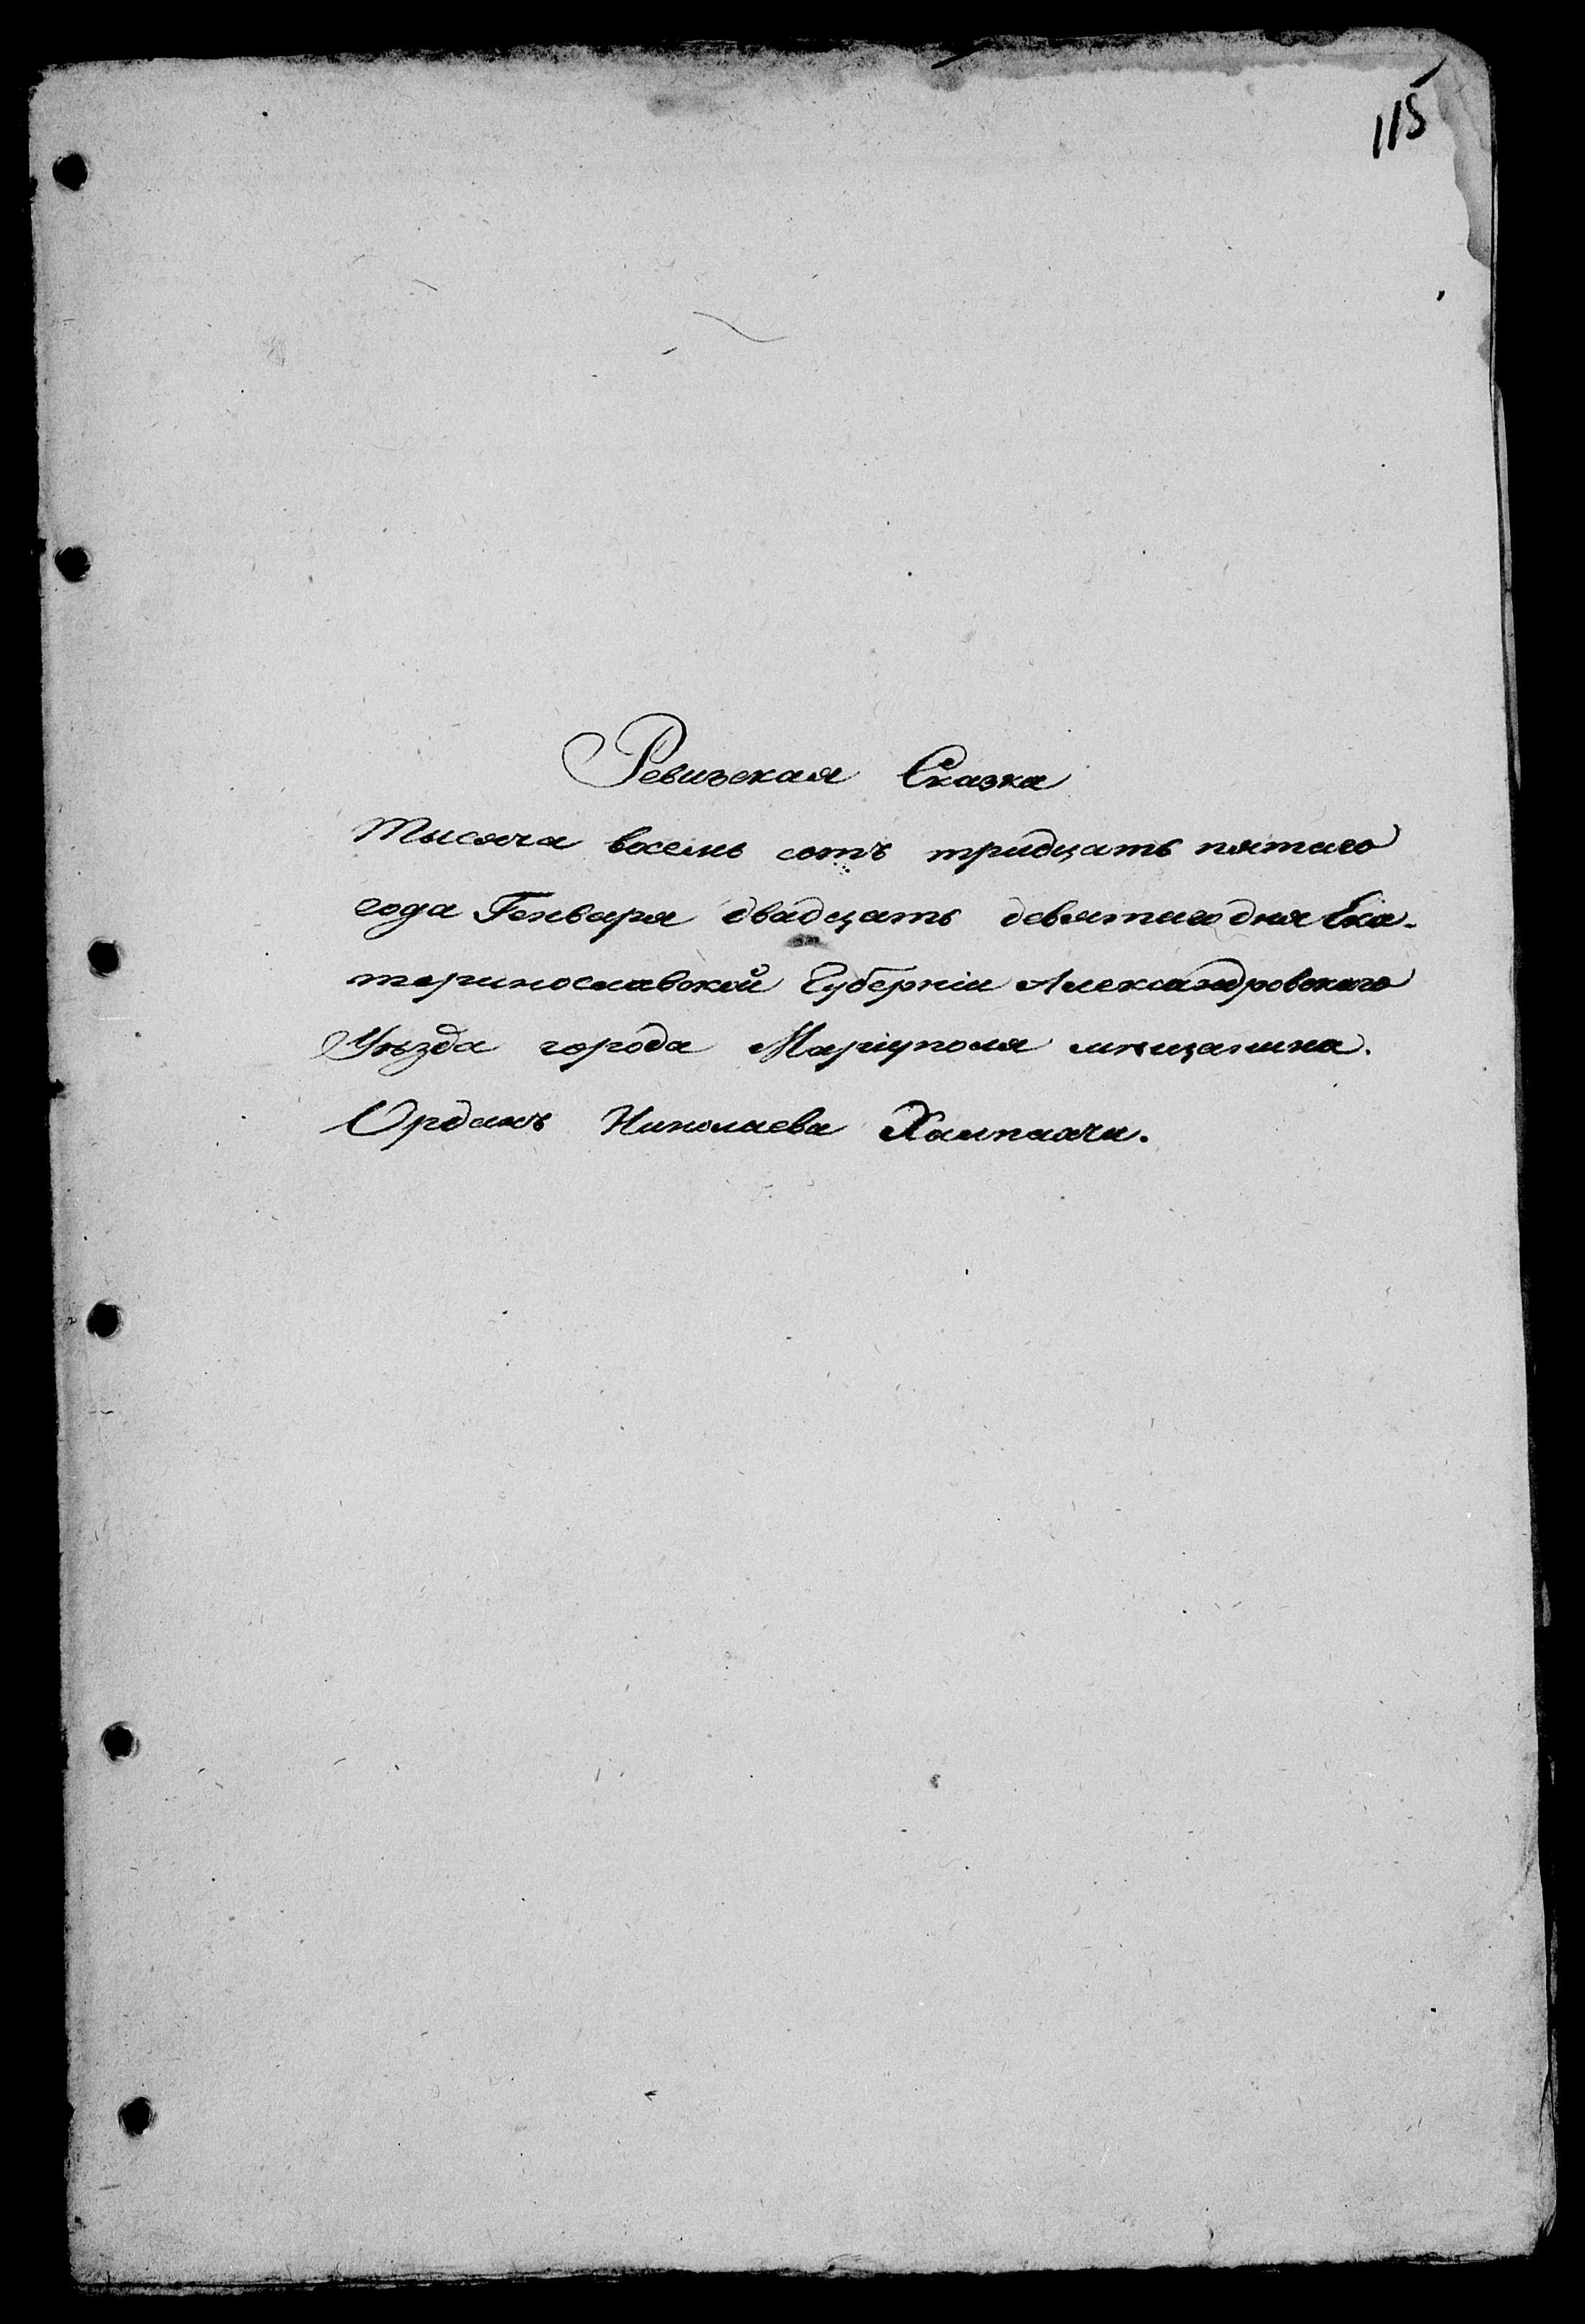 115
Ревизская Сказка
Тысяча восемь сотъ тридцать пятаго
года Генваря двадцать девятаго дня Ека-
теринославской Губерніи Александровскаго
Уѣзда города Маріуполя мѣщанина.
Орданъ Николаева